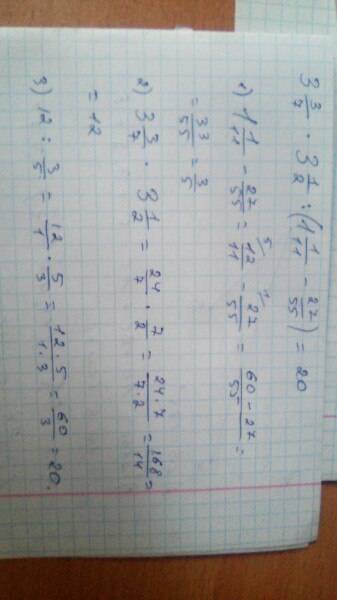 3 3/7 · 3 1/2 : (1 1/11 - 27/55) = 20
1) 1 1/11 - 27/55 = 12/11 (5 - 27/55 (1 = 60-27/55 =
= 33/55 = 3/5
2) 3 3/7 · 3 1/2 = 24/7 · 7/2 = 24·7/7·2 = 168/14 =
= 12
3) 12 : 3/5 = 12/1 · 5/3 = 12·5/1·3 = 60/3 = 20.